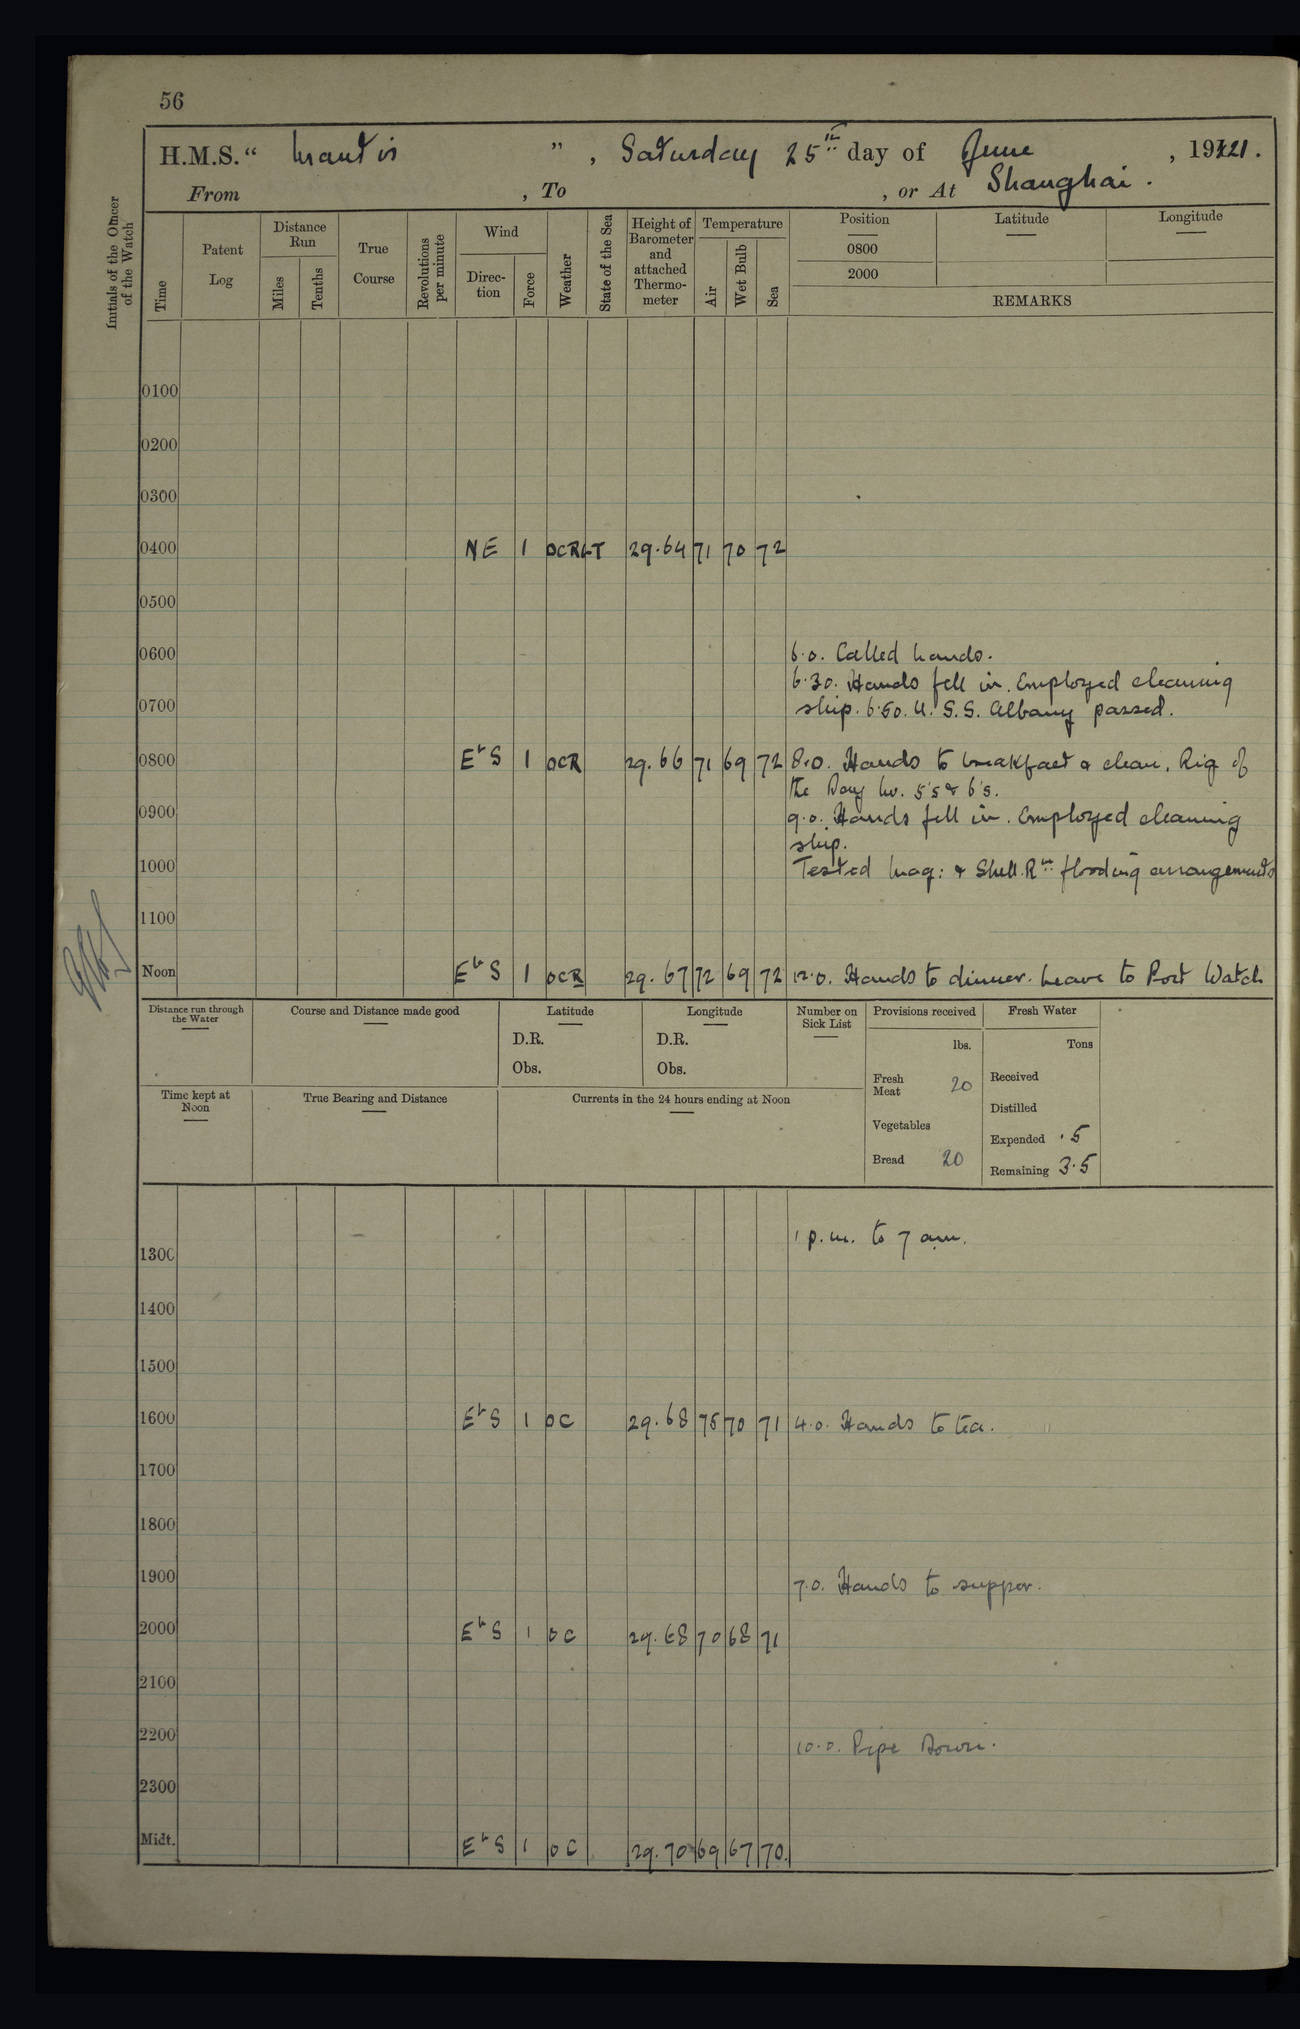 56
H.M.S. “ Mantis ” , Saturday 25th day of June , 1921.
From , To , or At Shanghai.
Initials of the Officer of the Watch
Time
Patent Log
Distance Run
Miles
Tenths
True Course
Revolutions per minute
Wind
Direction
Force
Weather
State of the Sea
Height of Barometer and attached Thermometer
Temperature
Air
Wet Bulb
Sea
Position
0800
2000
Latitude
Longitude
REMARKS
0100
0200
0300
0400 NE 1 OCRLT 29.64 71 70 72
0500
0600 6.0. Called hands.
6.30. Hands fell in. Employed cleaning
0700 ship. 6.50. U.S.S. Albany passed.
0800 EbS 1 OCR 29.66 71 69 72 8.0. Hands to breakfast & clean. Rig of
the Day No. 5's & 6's.
0900 9.0. Hands fell in. Employed cleaning
ship.
1000 Tested Mag: & Shell Rm flooding arrangements
1100
Noon EbS 1 OCR 29.67 72 69 72 12.0. Hands to dinner. Leave to Port Watch
Distance run through the Water
Course and Distance made good
Latitude
D.R.
Obs.
Longitude
D.R.
Obs.
Number on Sick List
Provisions received
lbs.
Fresh Meat 20
Vegetables
Bread 20
Fresh Water
Tons
Received
Distilled
Expended .5
Remaining 3.5
Time kept at Noon
True Bearing and Distance
Currents in the 24 hours ending at Noon
1 p.m. to 7 am.
1300
1400
1500
1600 EbS 1 OC 29.68 75 70 71 4.0. Hands to tea.
1700
1800
1900 7.0. Hands to supper.
2000 EbS 1 OC 29.68 70 68 71
2100
2200 10.0. Pipe Down.
2300
Midt. EbS 1 OC 29.70 69 67 70.